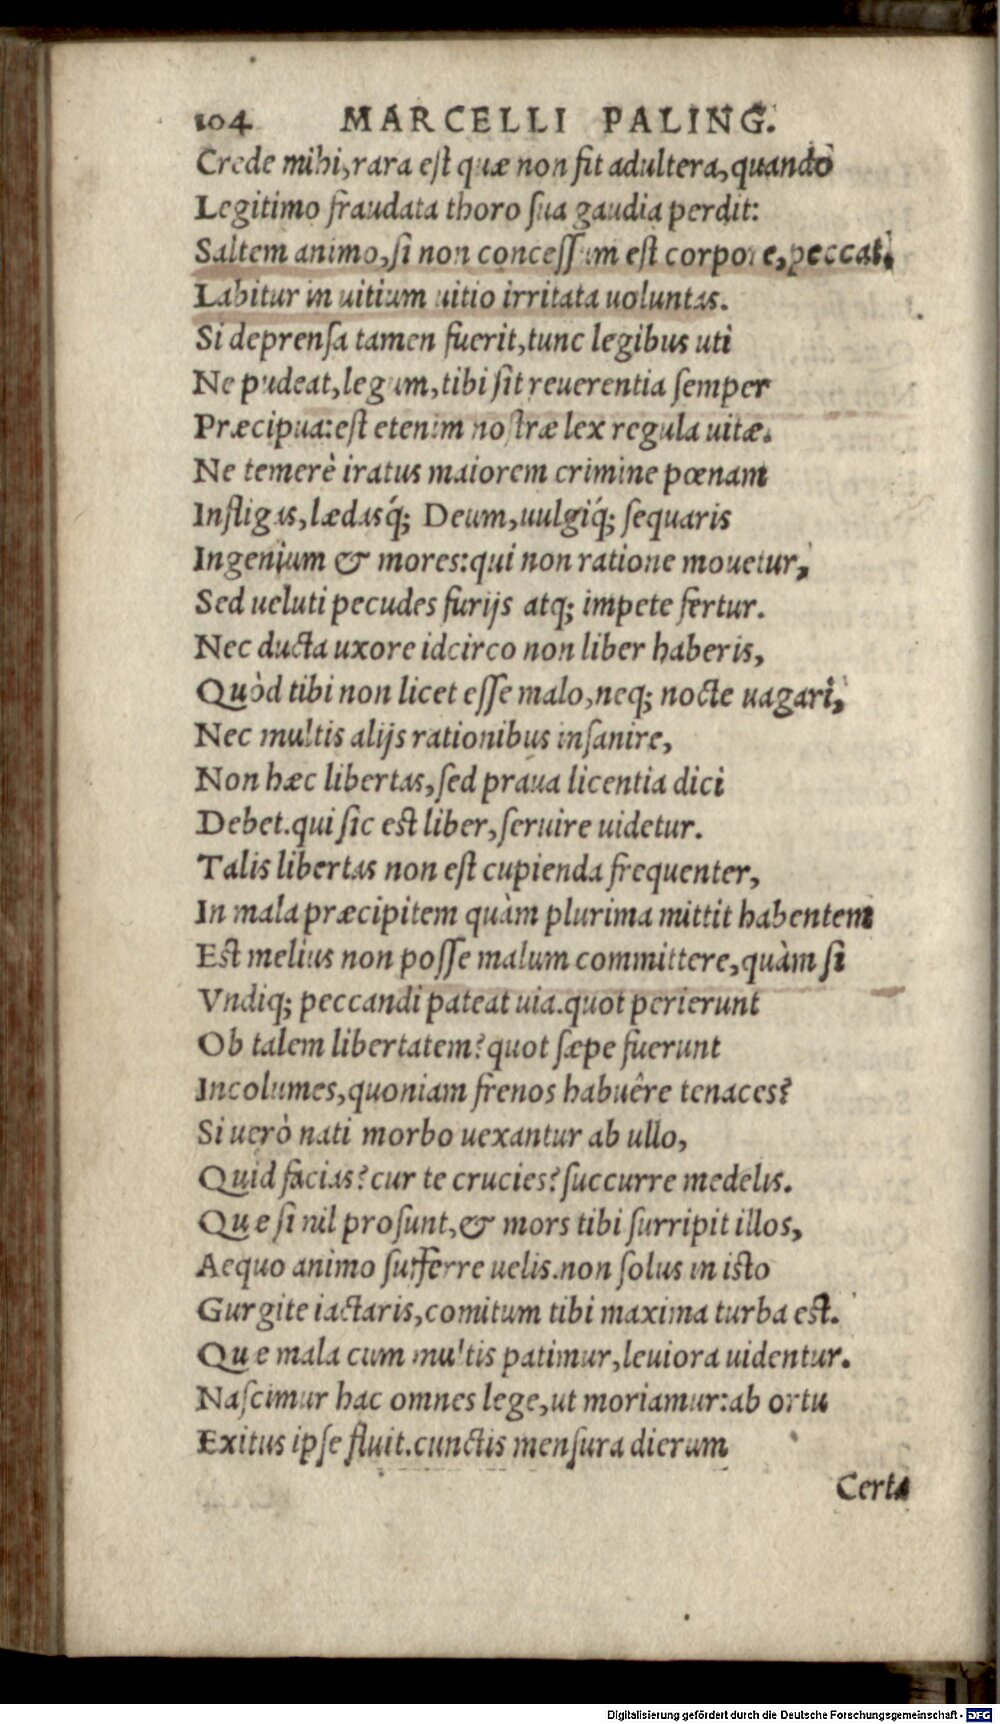 104 MARCELLI PALING.
Crede mihi, rara eſt quæ non ſit adultera, quando
Legitimo fraudata thoro ſua gaudia perdit:
Saltem animo, ſi non conceſſum eſt corpore, peccat.
Labitur in uitium uitio irritata uoluntas.
Si deprenſa tamen fuerit, tunc legibus uti
Ne pudeat, legum, tibi ſit reuerentia ſemper
Præcipua: eſt etenim noſtræ lex regula uitæ.
Ne temerè iratus maiorem crimine pœnam
Infligas, lædasq́; Deum, uulgiq́; ſequaris
Ingenium & mores: qui non ratione mouetur,
Sed ueluti pecudes furijs atq; impete fertur.
Nec ducta uxore idcirco non liber haberis,
Quòd tibi non licet eſſe malo, neq; nocte uagari,
Nec multis alijs rationibus inſanire,
Non hæc libertas, ſed praua licentia dici
Debet. qui ſic eſt liber, ſeruire uidetur.
Talis libertas non eſt cupienda frequenter,
In mala præcipitem quàm plurima mittit habentem
Eſt melius non poſſe malum committere, quàm ſi
Vndiq; peccandi pateat uia. quot perierunt
Ob talem libertatem? quot ſæpe fuerunt
Incolumes, quoniam frenos habuêre tenaces?
Si uerò nati morbo uexantur ab ullo,
Quid facias? cur te crucies? ſuccurre medelis.
Que ſi nil proſunt, & mors tibi ſurripit illos,
Aequo animo ſufferre uelis. non ſolus in iſto
Gurgite iactaris, comitum tibi maxima turba eſt.
Que mala cum multis patimur, leuiora uidentur.
Naſcimur hac omnes lege, ut moriamur: ab ortu
Exitus ipſe fluit. cunctis menſura dierum
Certa
Digitalisierung gefördert durch die Deutsche Forschungsgemeinschaft - DFG